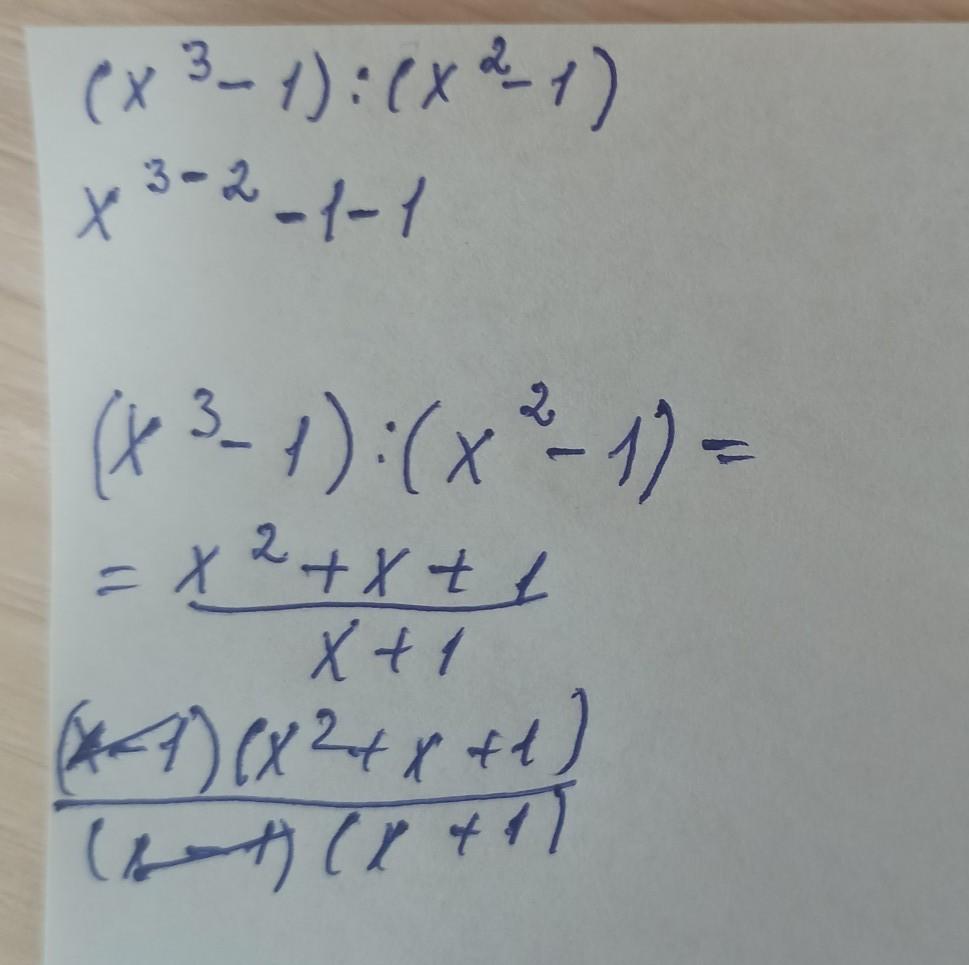 (x³ - 1) : (x² - 1)
x³⁻² - 1 - 1
(x³ - 1) : (x² - 1) =
= x² + x + 1
x + 1
(x - 1)(x² + x + 1)
(x - 1)(x + 1)